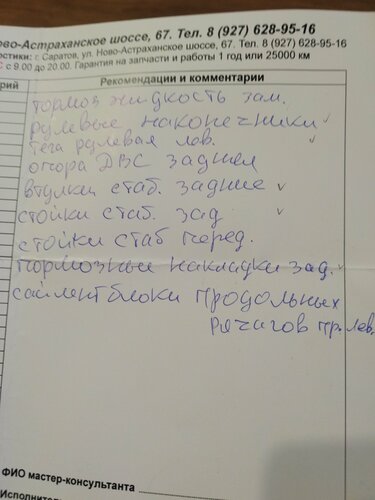 ово-Астраханское шоссе, 67. Тел. 8 (927) 628-95-16
остики: г. Саратов, ул. Ново-Астраханское шоссе, 67. Тел. 8 (927) 628-95-16
С с 9.00 до 20.00. Гарантия на запчасти и работы 1 год или 25000 км
арий Рекомендации и комментарии
тормоз жидкость зам.
рулевые наконечники ✓
тяга рулевая лев. ✓
опора ДВС задняя
втулки стаб. задние ✓
стойки стаб. зад ✓
стойки стаб перед.
тормозные накладки зад. ✓
сайлентблоки продольных
рычагов пр. лев.
ФИО мастер-консультанта
Исполнител